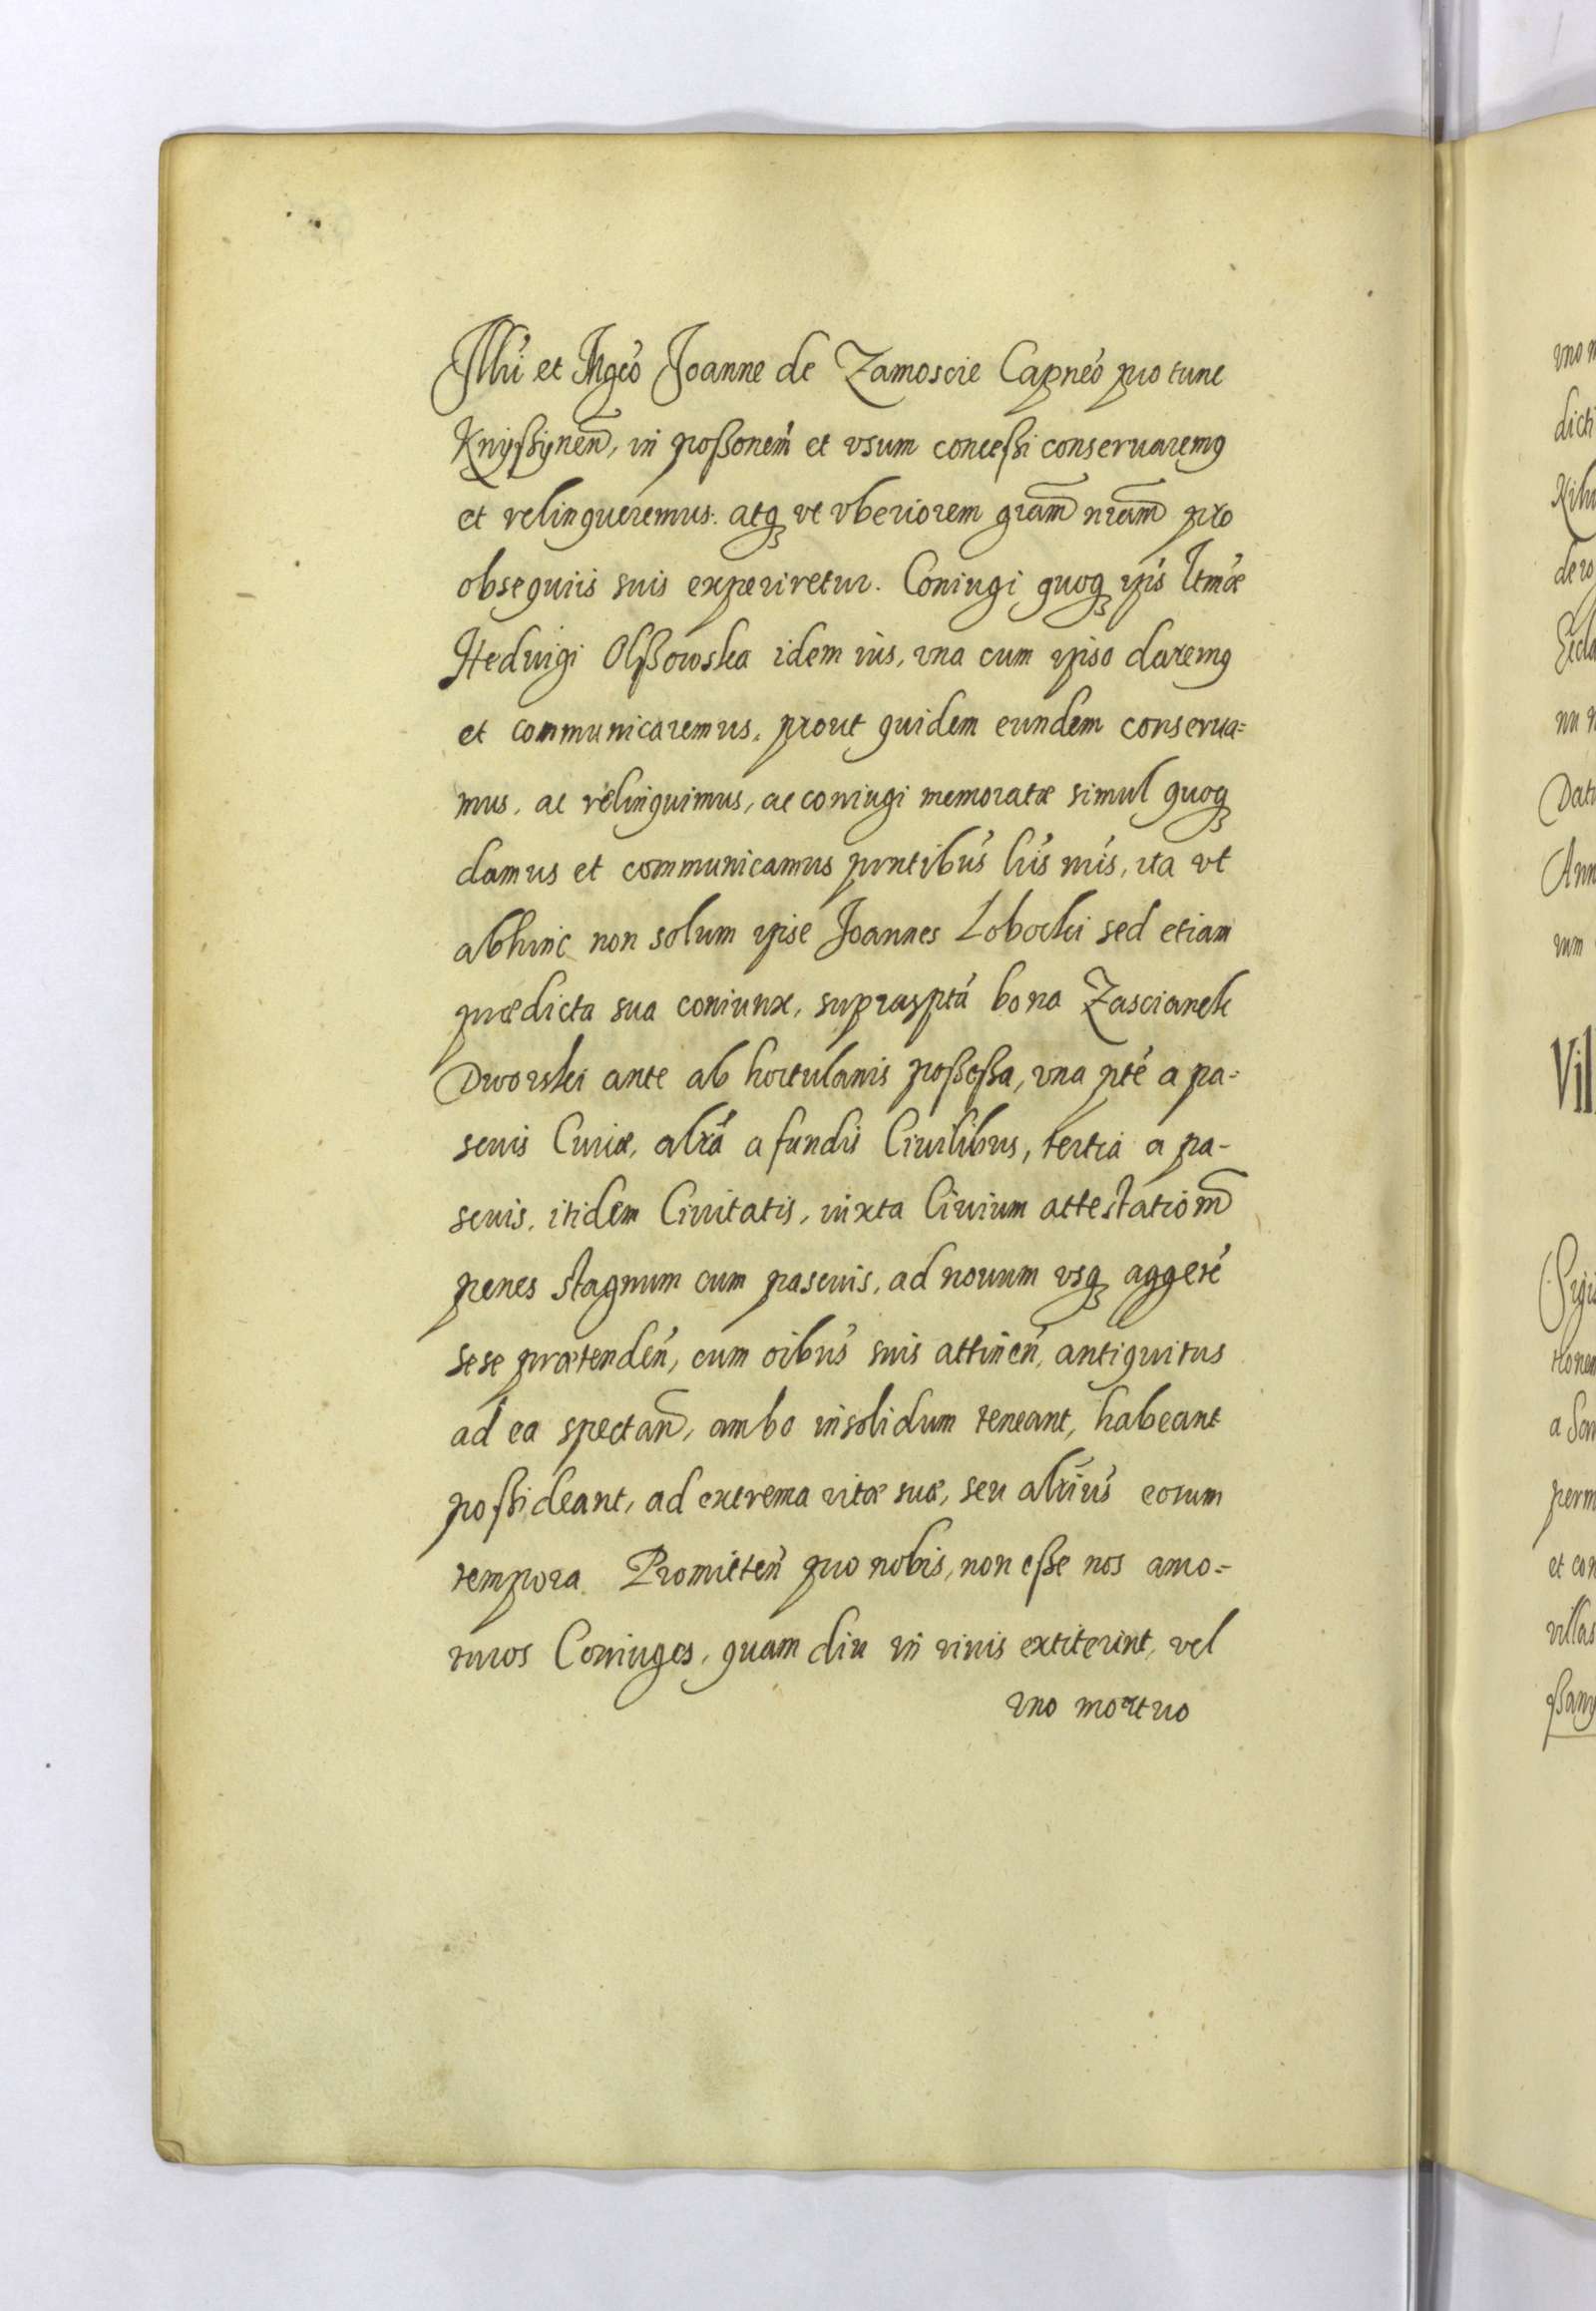 Illri et Mgco Joanne de Zamoscie Capneo pro tunc
Knyßynen, in poßonem et vsum conceßi conseruaremꝰ
et relinqueremus. atqꝫ vt vberiorem gram nram pro
obsequiis suis experiretur. Coniugi quoqꝫ ipis ltmæ
Heduigi Olßowska idem ius, vna cum ipso daremꝰ
et communicaremus, prout quidem eundem conserua=
mus, ac relinquimus, ac coniugi memoratæ simul quoqꝫ
damus et communicamus pntibus lris nris, ita vt
abhinc non solum ipse Joannes Lobocki sed etiam
prædicta sua coniunx, suprasptа bona Zascianek
Dworski ante ab hortulanis poßeßa, vna pte a pa=
scuis Curiæ, altra a fundis Ciuilibus, tertia a pa-
scuis, itidem Ciuitatis, iuxta Ciuium attestatiom
penes stagnum cum pascuis, ad nouum vsqꝫ aggere
sese prætenden, cum oibus suis attinen, antiquitus
ad ea spectan, ambo insolidum teneant, habeant
poßideant, ad extrema vitæ suæ, seu altrius eorum
tempora. Promitten pro nobis, non eße nos amo=
turos Coniuges, quam diu in viuis extiterint, vel
vno mortuo